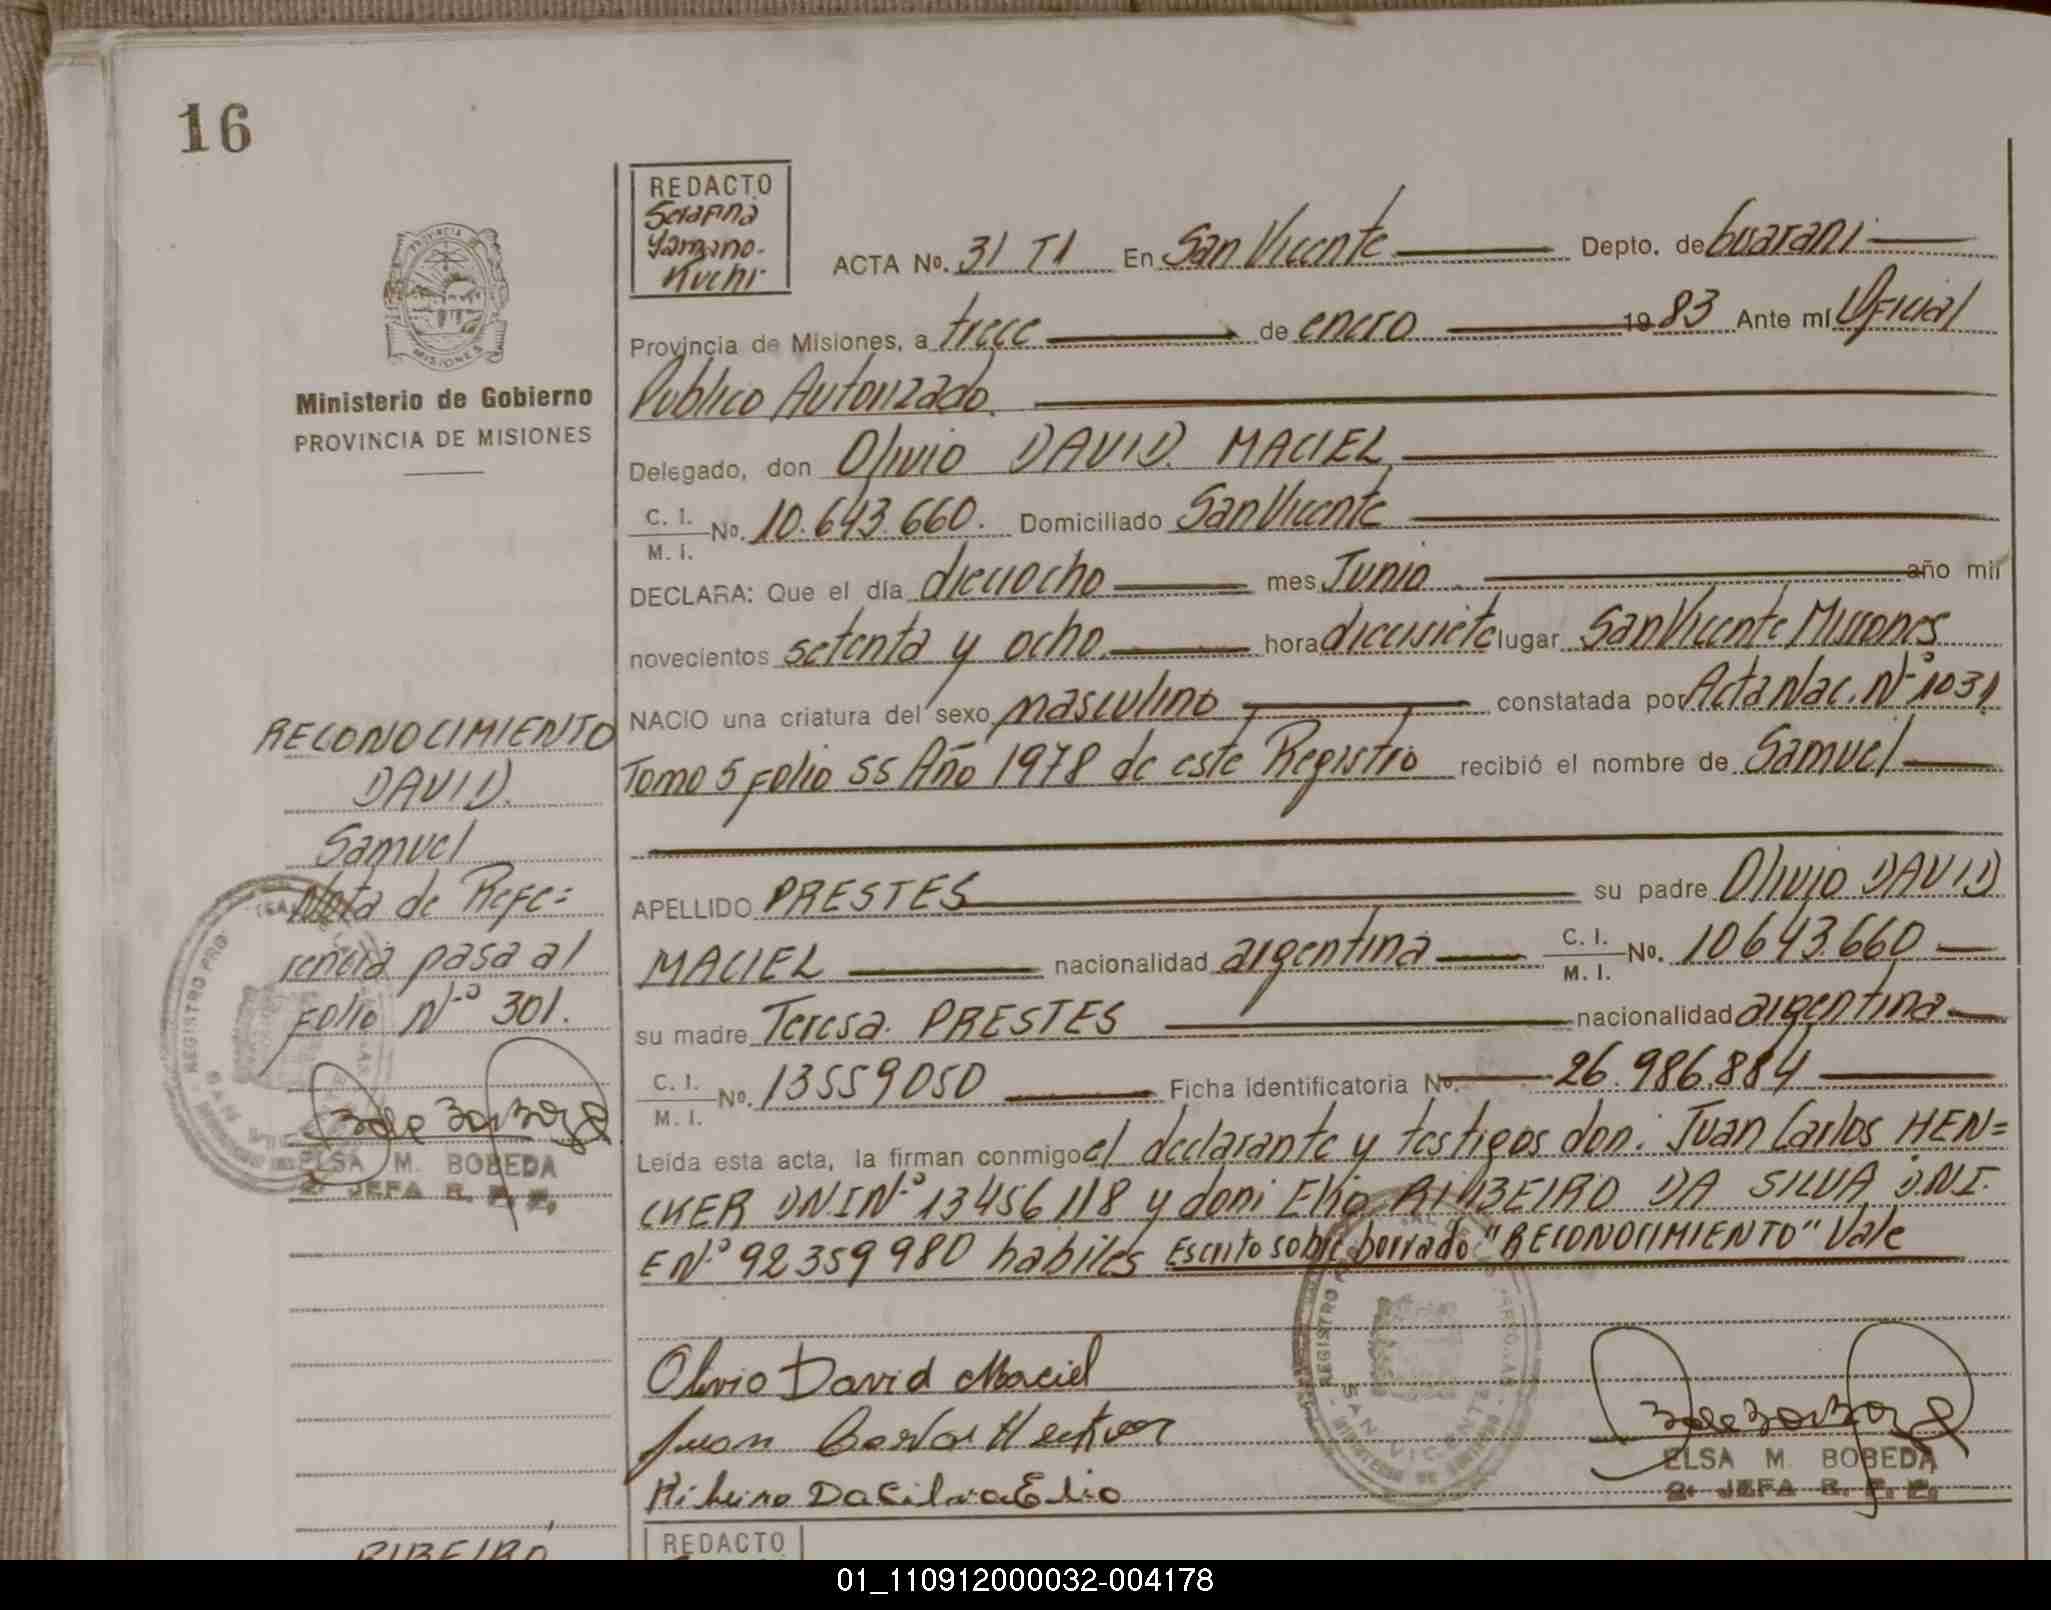 16
REDACTO
Serafina
Yanzano-
Kuchi-
ACTA No. 31 T1 En San Vicente Depto. de Guarani
Provincia de Misiones, a trece de enero 1983 Ante mí Oficial
Publico Autorizado.
PROVINCIA
MISIONES
Ministerio de Gobierno
PROVINCIA DE MISIONES
Delegado, don Olivio DAVID. MACIEL
C. I.
M. I.
No. 10.643.660. Domiciliado San Vicente
DECLARA: Que el día dieciocho mes Junio año mil
novecientos setenta y ocho hora diecisiete lugar San Vicente Misiones
NACIO una criatura del sexo masculino constatada por Acta Nac. Nº 1031
Tomo 5 Folio 55 Año 1978 de este Registro recibió el nombre de Samuel
RECONOCIMIENTO
DAVID.
Samuel
Nota de Refe=
rencia pasa al
Folio Nº 301.
ELSA M. BOBEDA
2ª JEFA R. P. P.
APELLIDO PRESTES su padre Olivio DAVID
MACIEL nacionalidad argentina C. I. M. I. No. 10643.660
su madre Teresa. PRESTES nacionalidad argentina
C. I.
M. I.
No. 13559050 Ficha identificatoria No. 26.986.884
Leída esta acta, la firman conmigo el declarante y testigos don: Juan Carlos HEN=
CKER DNI Nº 13456118 y don: Elio RIBEIRO DA SILVA D.N.I.
E Nº 92359980 habiles Escrito sobre borrado "RECONOCIMIENTO" Vale
Olivio David Maciel
Juan Carlos
Ribeiro Da Silva Elio
SAN VICENTE
ELSA M. BOBEDA
2ª JEFA R. P. P.
REDACTO
RIBEIRO
01_110912000032-004178